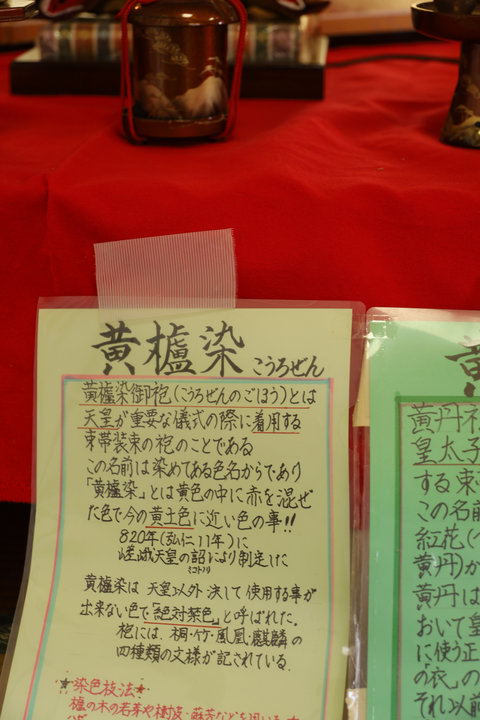 黄櫨染 こうろぜん
黄櫨染御袍(こうろぜんのごほう)とは
天皇が重要な儀式の際に着用する
束帯装束の袍のことである
この名前は染めてある色名からであり
「黄櫨染」とは黄色の中に赤を混ぜ
た色で今の黄土色に近い色の事!!
820年(弘仁11年)に
嵯峨天皇の詔により制定した
ミコトノリ
黄櫨染は天皇以外決して使用する事が
出来ない色で「絶対禁色」と呼ばれた.
袍には、桐・竹・鳳凰・麒麟の
四種類の文様が記されている.
★染色技法★
櫨の木の若芽や樹液・蘇芳などを用い
黄丹
皇太子
する束
この名前
紅花(
黄丹)か
黄丹は
おいて皇
に使う正
「の衣」の
それ以前